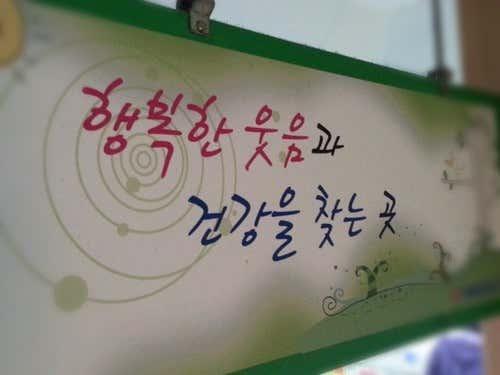 행복한 웃음과
건강을 찾는 곳